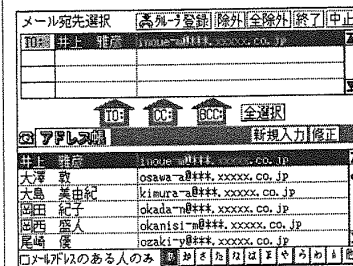 メール宛先選択 グループ登録 除外 全除外 終了 中止
TO: 井上 雅彦 inoue-m@***.xxxxx.co.jp
TO: CC: BCC: 全選択
アドレス帳 新規入力 修正
井上 雅彦 inoue-m@***.xxxxx.co.jp
大澤 敦 osawa-a@***.xxxxx.co.jp
大島 美由紀 kimura-a@***.xxxxx.co.jp
岡田 紀子 okada-n@***.xxxxx.co.jp
岡西 盛人 okanisi-m@***.xxxxx.co.jp
尾崎 優 ozaki-y@***.xxxxx.co.jp
メールアドレスのある人のみ あ か さ た な は ま や ら わ